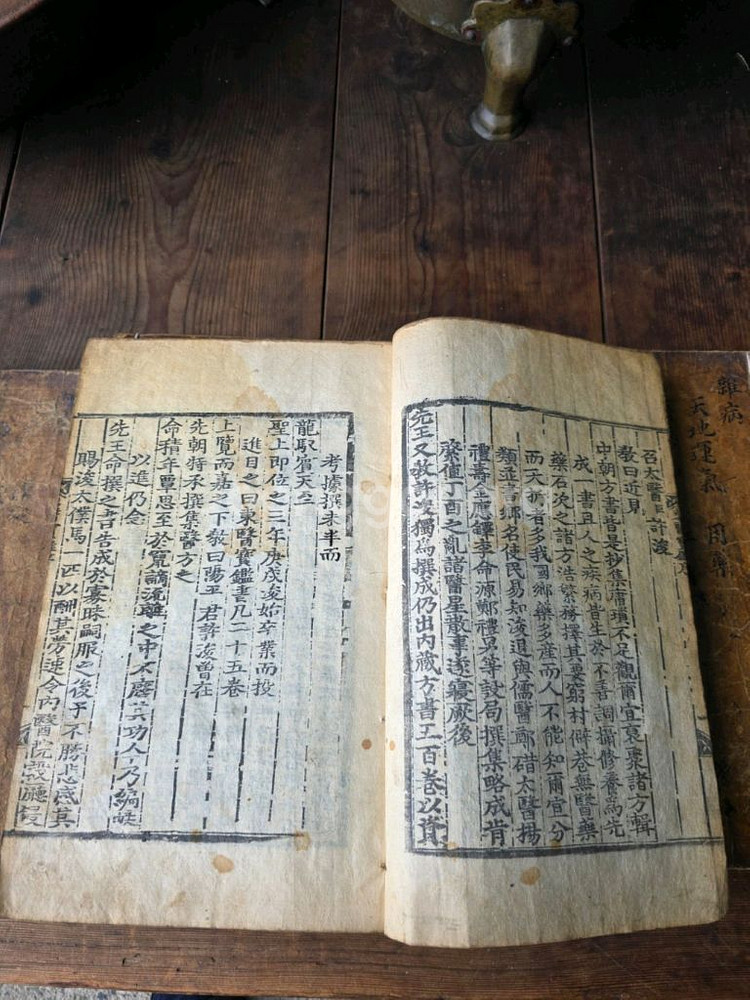 雜病
天地運氣 用藥
召太醫臣許浚
敎曰近見
中朝方書皆是抄集庸瑣不足觀爾宜裒聚諸方輯
成一書且人之疾病皆生於不善調攝修養爲先
藥石次之諸方浩繁務擇其要窮村僻巷無醫藥
而夭折者多我國鄕藥多産而人不能知爾宜分
類並書鄕名使民易知浚退與儒醫鄭碏太醫楊
禮壽金應鐸李命源鄭禮男等設局撰集略成肯
綮值丁酉之亂諸醫星散事遂寢厥後
先王又敎許浚獨爲撰成仍出內藏方書五百卷以資
考據撰未半而
龍馭賓天至
聖上卽位之三年庚戌浚始卒業而投
進目之曰東醫寶鑑書凡二十五卷
上覽而嘉之下敎曰陽平君許浚曾在
先朝特承撰集醫方之
命積年覃思至於竄謫流離之中不廢其功今乃編帙
以進仍念
先王命撰之書告成於寡昧嗣服之後予不勝悲感其
賜浚太僕馬一匹以酬其勞速令內醫院設廳鋟